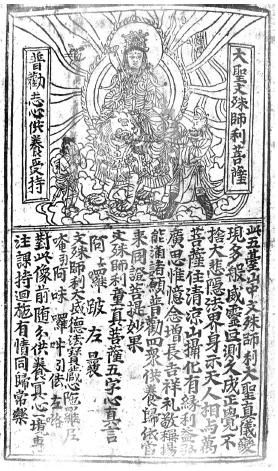 大聖文殊師利菩薩
普勸志心供養受持
此五臺山中文殊師利大聖真儀變
現多般威靈叵測久成正覺不
捨大悲隱法界身示天人相與萬
菩薩住清涼山攝化有緣利益弘
廣思惟憶念增長吉祥礼敬稱揚
能滿諸願普勸四眾供養歸依當
來同證菩提妙果
文殊師利童真菩薩五字心真言
阿上囉跛左曩
文殊師利大威德法寶藏心陀羅尼
唵引阿味囉𤙖引佉左洛
對此像前隨分供養冥心一境專
注課持迴施有情同歸常樂